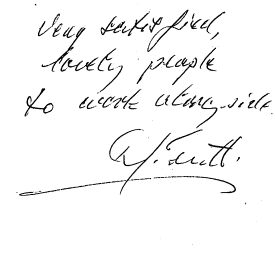 Very satisfied,
lovely people
to work along-side.